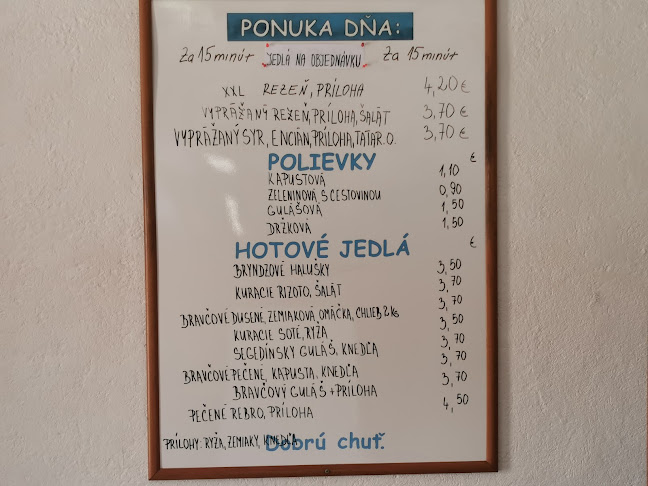 PONUKA DŇA:
Za 15 minút JEDLÁ NA OBJEDNÁVKU Za 15 minút
XXL REZEŇ, PRÍLOHA 4,20 €
VYPRÁŽANÝ REZEŇ, PRÍLOHA, ŠALÁT 3,70 €
VYPRÁŽANÝ SYR, ENCIÁN, PRÍLOHA, TATAR.O. 3,70 €
POLIEVKY €
KAPUSTOVÁ 1,10
ZELENINOVÁ S CESTOVINOU 0,90
GULÁŠOVÁ 1,50
DRŽKOVÁ 1,50
HOTOVÉ JEDLÁ €
BRYNDZOVÉ HALUŠKY 3,50
KURACIE RIZOTO, ŠALÁT 3,70
BRAVČOVÉ DUSENÉ, ZEMIAKOVÁ, OMÁČKA, CHLIEB 2 KS 3,70
KURACIE SOTÉ, RYŽA 3,50
SEGEDÍNSKY GULÁŠ, KNEDĽA 3,70
BRAVČOVÉ PEČENÉ, KAPUSTA, KNEDĽA 3,70
BRAVČOVÝ GULÁŠ + PRÍLOHA 3,70
PEČENÉ REBRO, PRÍLOHA 4,50
PRÍLOHY: RYŽA, ZEMIAKY, KNEDĽA
Dobrú chuť.